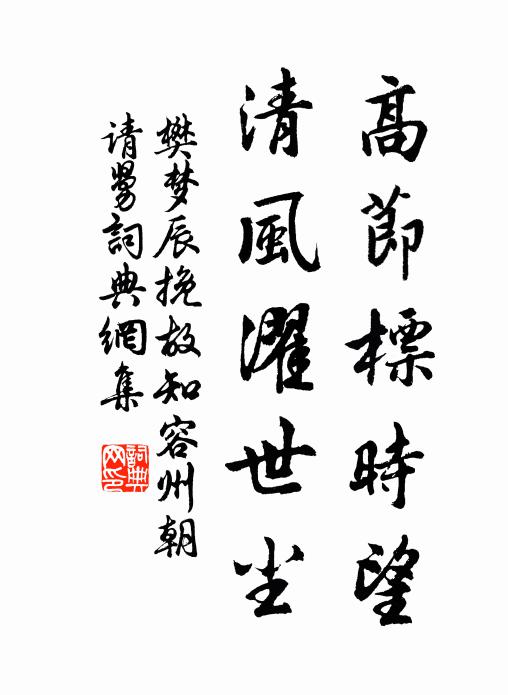 高節標時望
清風濯世尘
樊梦辰挽故知容州朝
请勞詞典網集
詞典网印